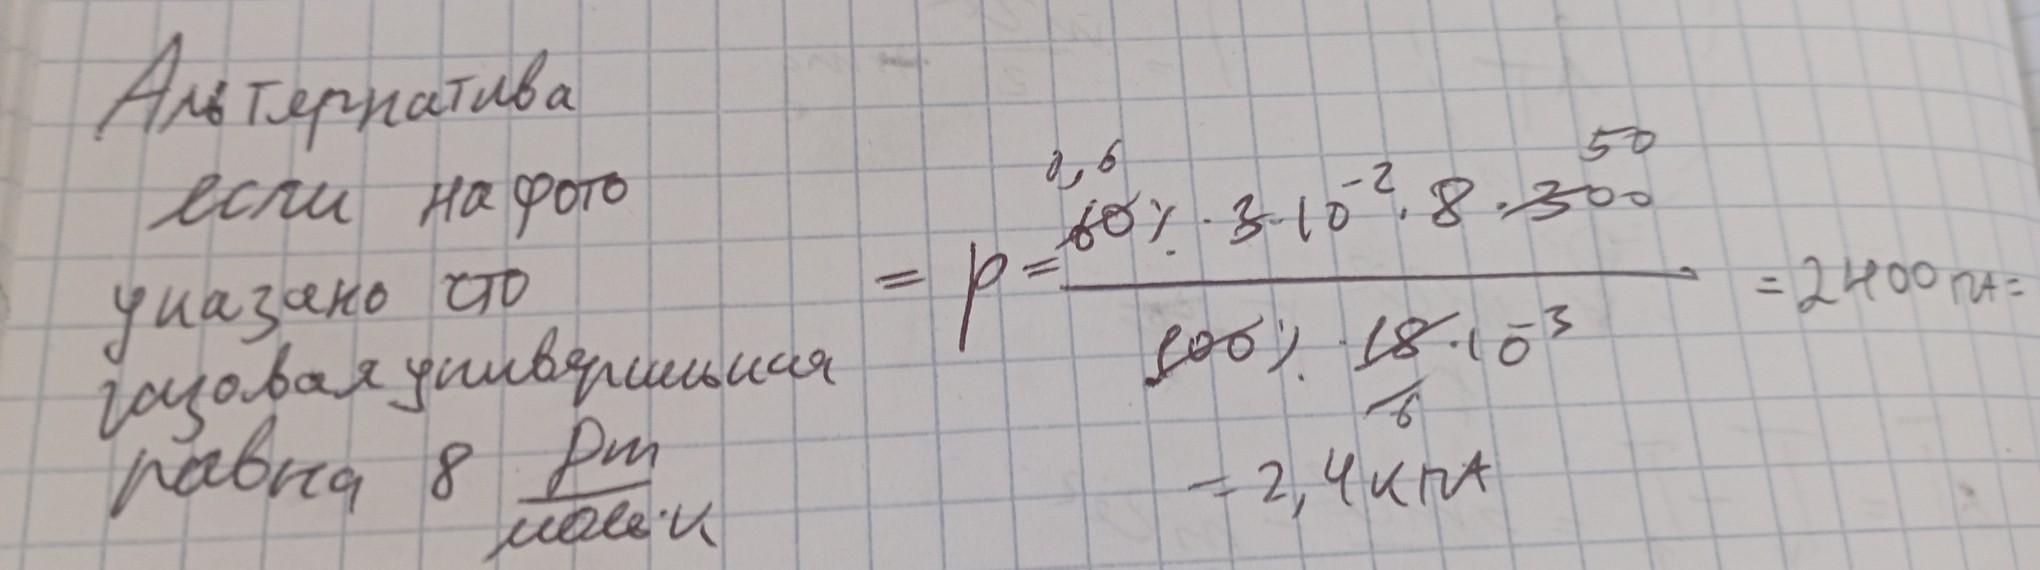 Альтернатива
если на фото
указано что
газовая универсальная
равна 8 Дж/моль·К
= p = 60% · 3 · 10⁻² · 8 · 300 / 100% · 18 · 10⁻³ = 2400 ПА =
0,6
50
6
= 2,4 кПА